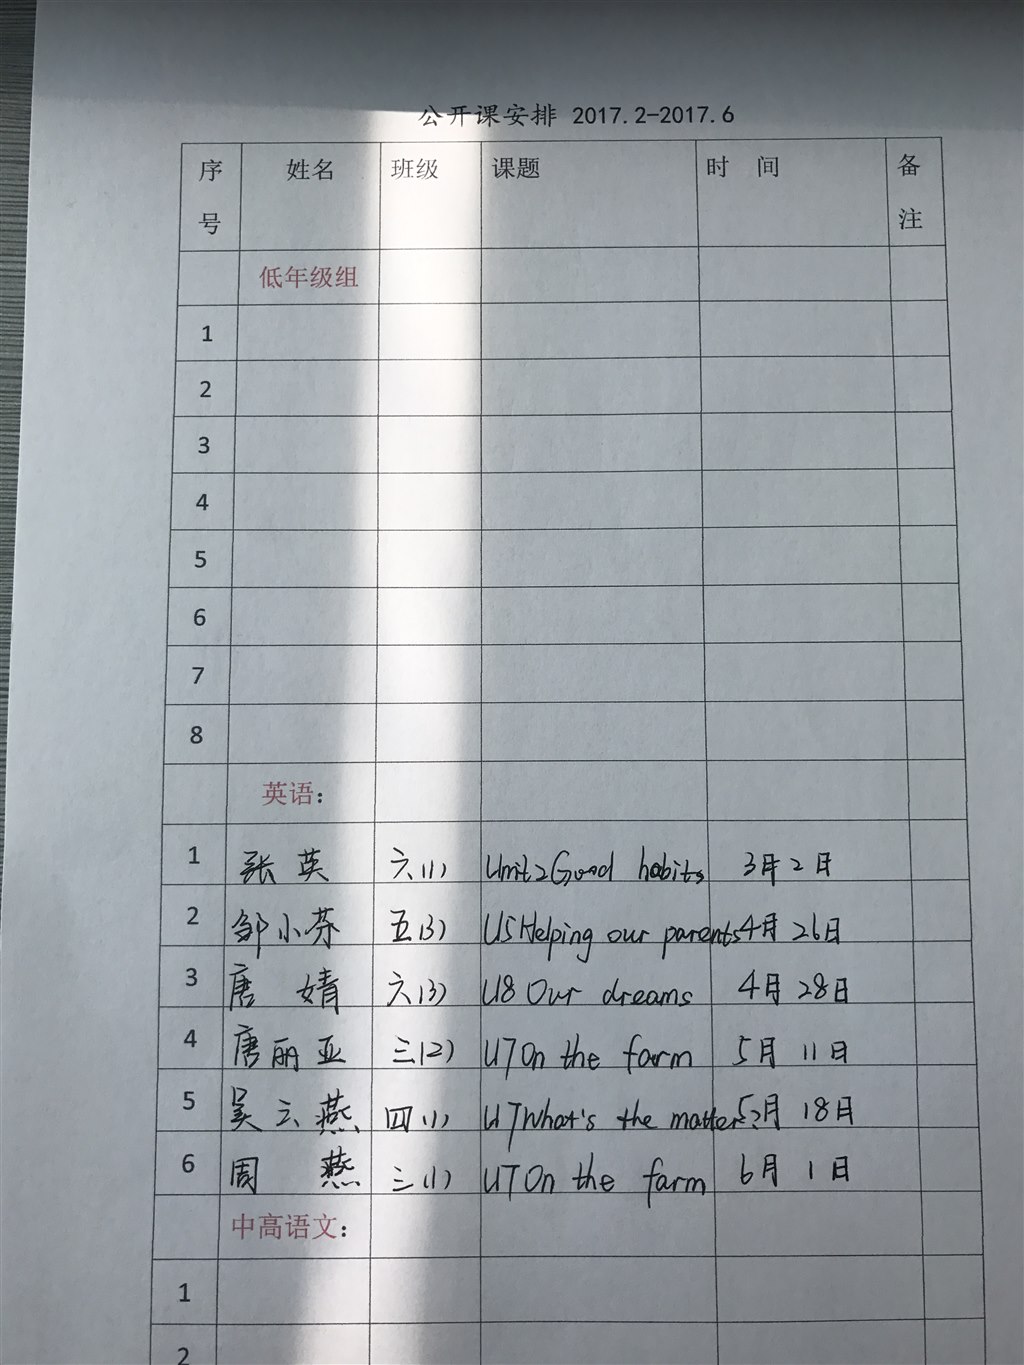 公开课安排 2017.2-2017.6
序号 姓名 班级 课题 时 间 备注
低年级组
1
2
3
4
5
6
7
8
英语：
1 张英 六(1) Unit2Good habits 3月2日
2 邹小芬 五(3) U5Helping our parents 4月26日
3 唐婧 六(3) U8 Our dreams 4月28日
4 唐丽亚 三(2) U7On the farm 5月11日
5 吴云燕 四(1) U7What's the matter? 5月18日
6 周燕 三(1) U7On the farm 6月1日
中高语文：
1
2